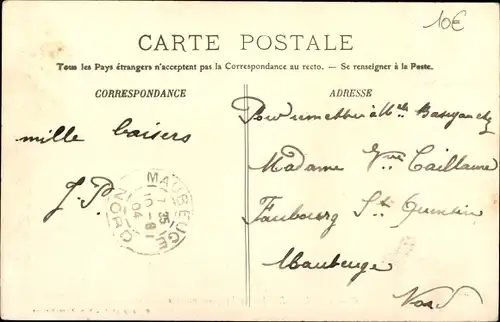 10€
CARTE POSTALE
Tous les Pays étrangers n'acceptent pas la Correspondance au recto. — Se renseigner à la Poste.
CORRESPONDANCE
ADRESSE
mille baisers
J. P.
MAUBEUGE
7 35
10 - 8
04
NORD
Pour remettre à Melle
Madame Vve Caillaume
Faubourg St Quentin
Maubeuge
Nord